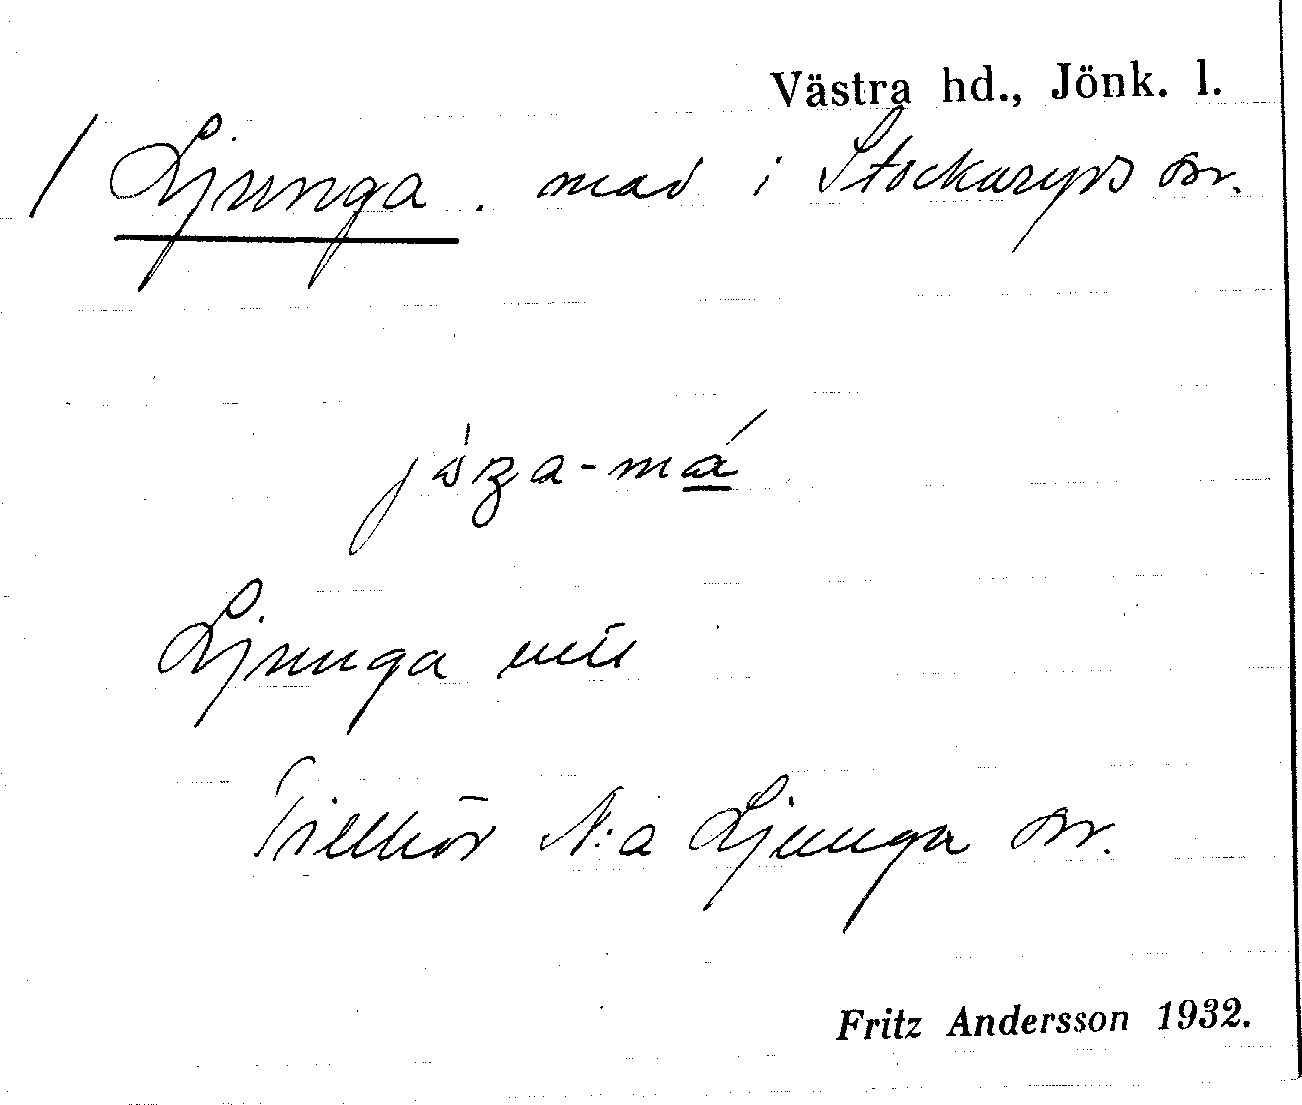 Västra hd., Jönk. l.
/ Ljunga. mad i Stockaryds sn.
Ljunga
Tillhör N:a Ljunga sn.
Fritz Andersson 1932.